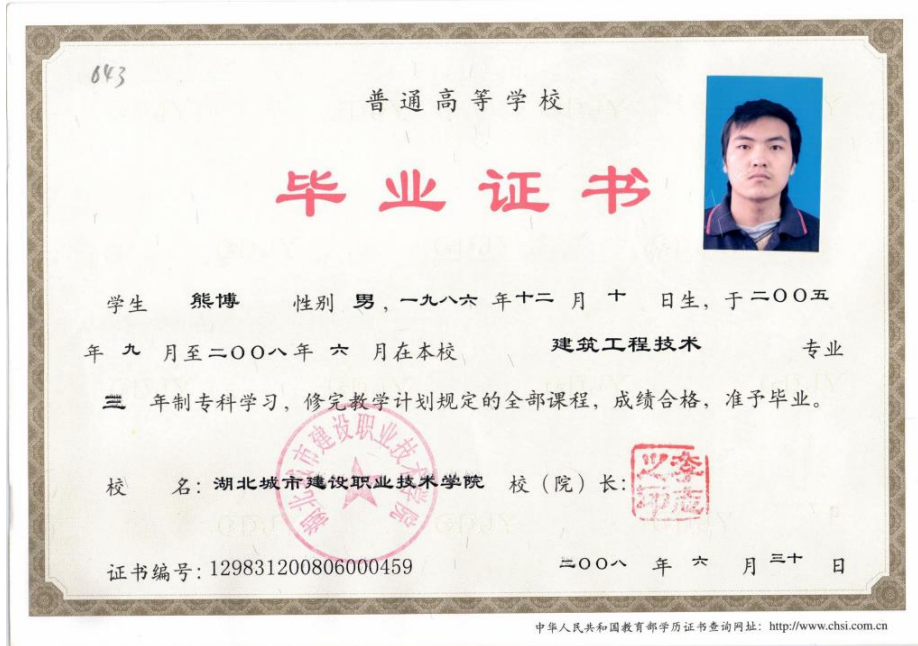 043
普通高等学校
毕业证书
学生 熊博 性别 男，一九八六 年 十二 月 十 日生，于 二〇〇五
年 九 月至 二〇〇八 年 六 月在本校 建筑工程技术 专业
三 年制专科学习，修完教学计划规定的全部课程，成绩合格，准予毕业。
校 名：湖北城市建设职业技术学院 校（院）长：
湖北城市建设职业技术学院
证书编号：129831200806000459 二〇〇八 年 六 月 三十 日
中华人民共和国教育部学历证书查询网址：http://www.chsi.com.cn